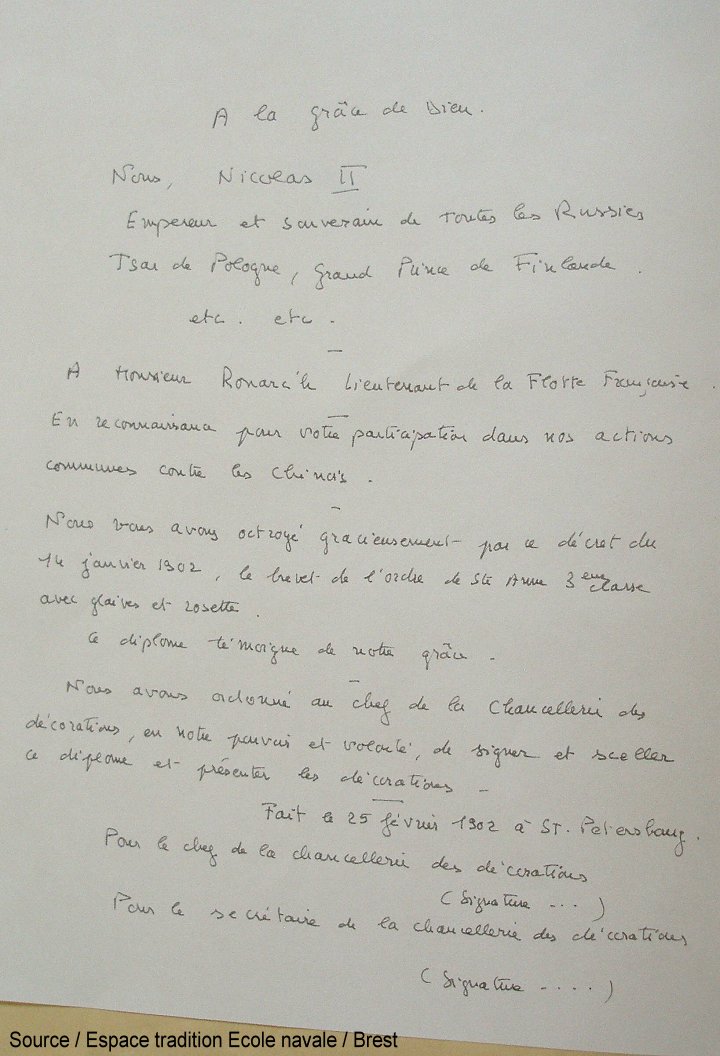 A la grâce de Dieu.
Nous, Nicolas II
Empereur et souverain de toutes les Russies
Tsar de Pologne, Grand Prince de Finlande.
etc. etc.
—
A Monsieur Ronarc'h Lieutenant de la Flotte Française.
—
En reconnaissance pour votre participation dans nos actions
communes contre les Chinois.
—
Nous vous avons octroyé gracieusement par ce décret du
14 janvier 1902, le brevet de l'ordre de Ste Anne 3ème classe
avec glaives et rosette.
Ce diplome témoigne de notre grâce.
—
Nous avons ordonné au chef de la Chancellerie des
décorations, en notre pouvoir et volonté, de signer et sceller
ce diplome et présenter les décorations -
—
Fait le 25 février 1902 à St. Petersbourg.
Pour le chef de la chancellerie des décorations
(Signature ...)
Pour le secrétaire de la chancellerie des décorations
(Signature ....)
Source / Espace tradition Ecole navale / Brest